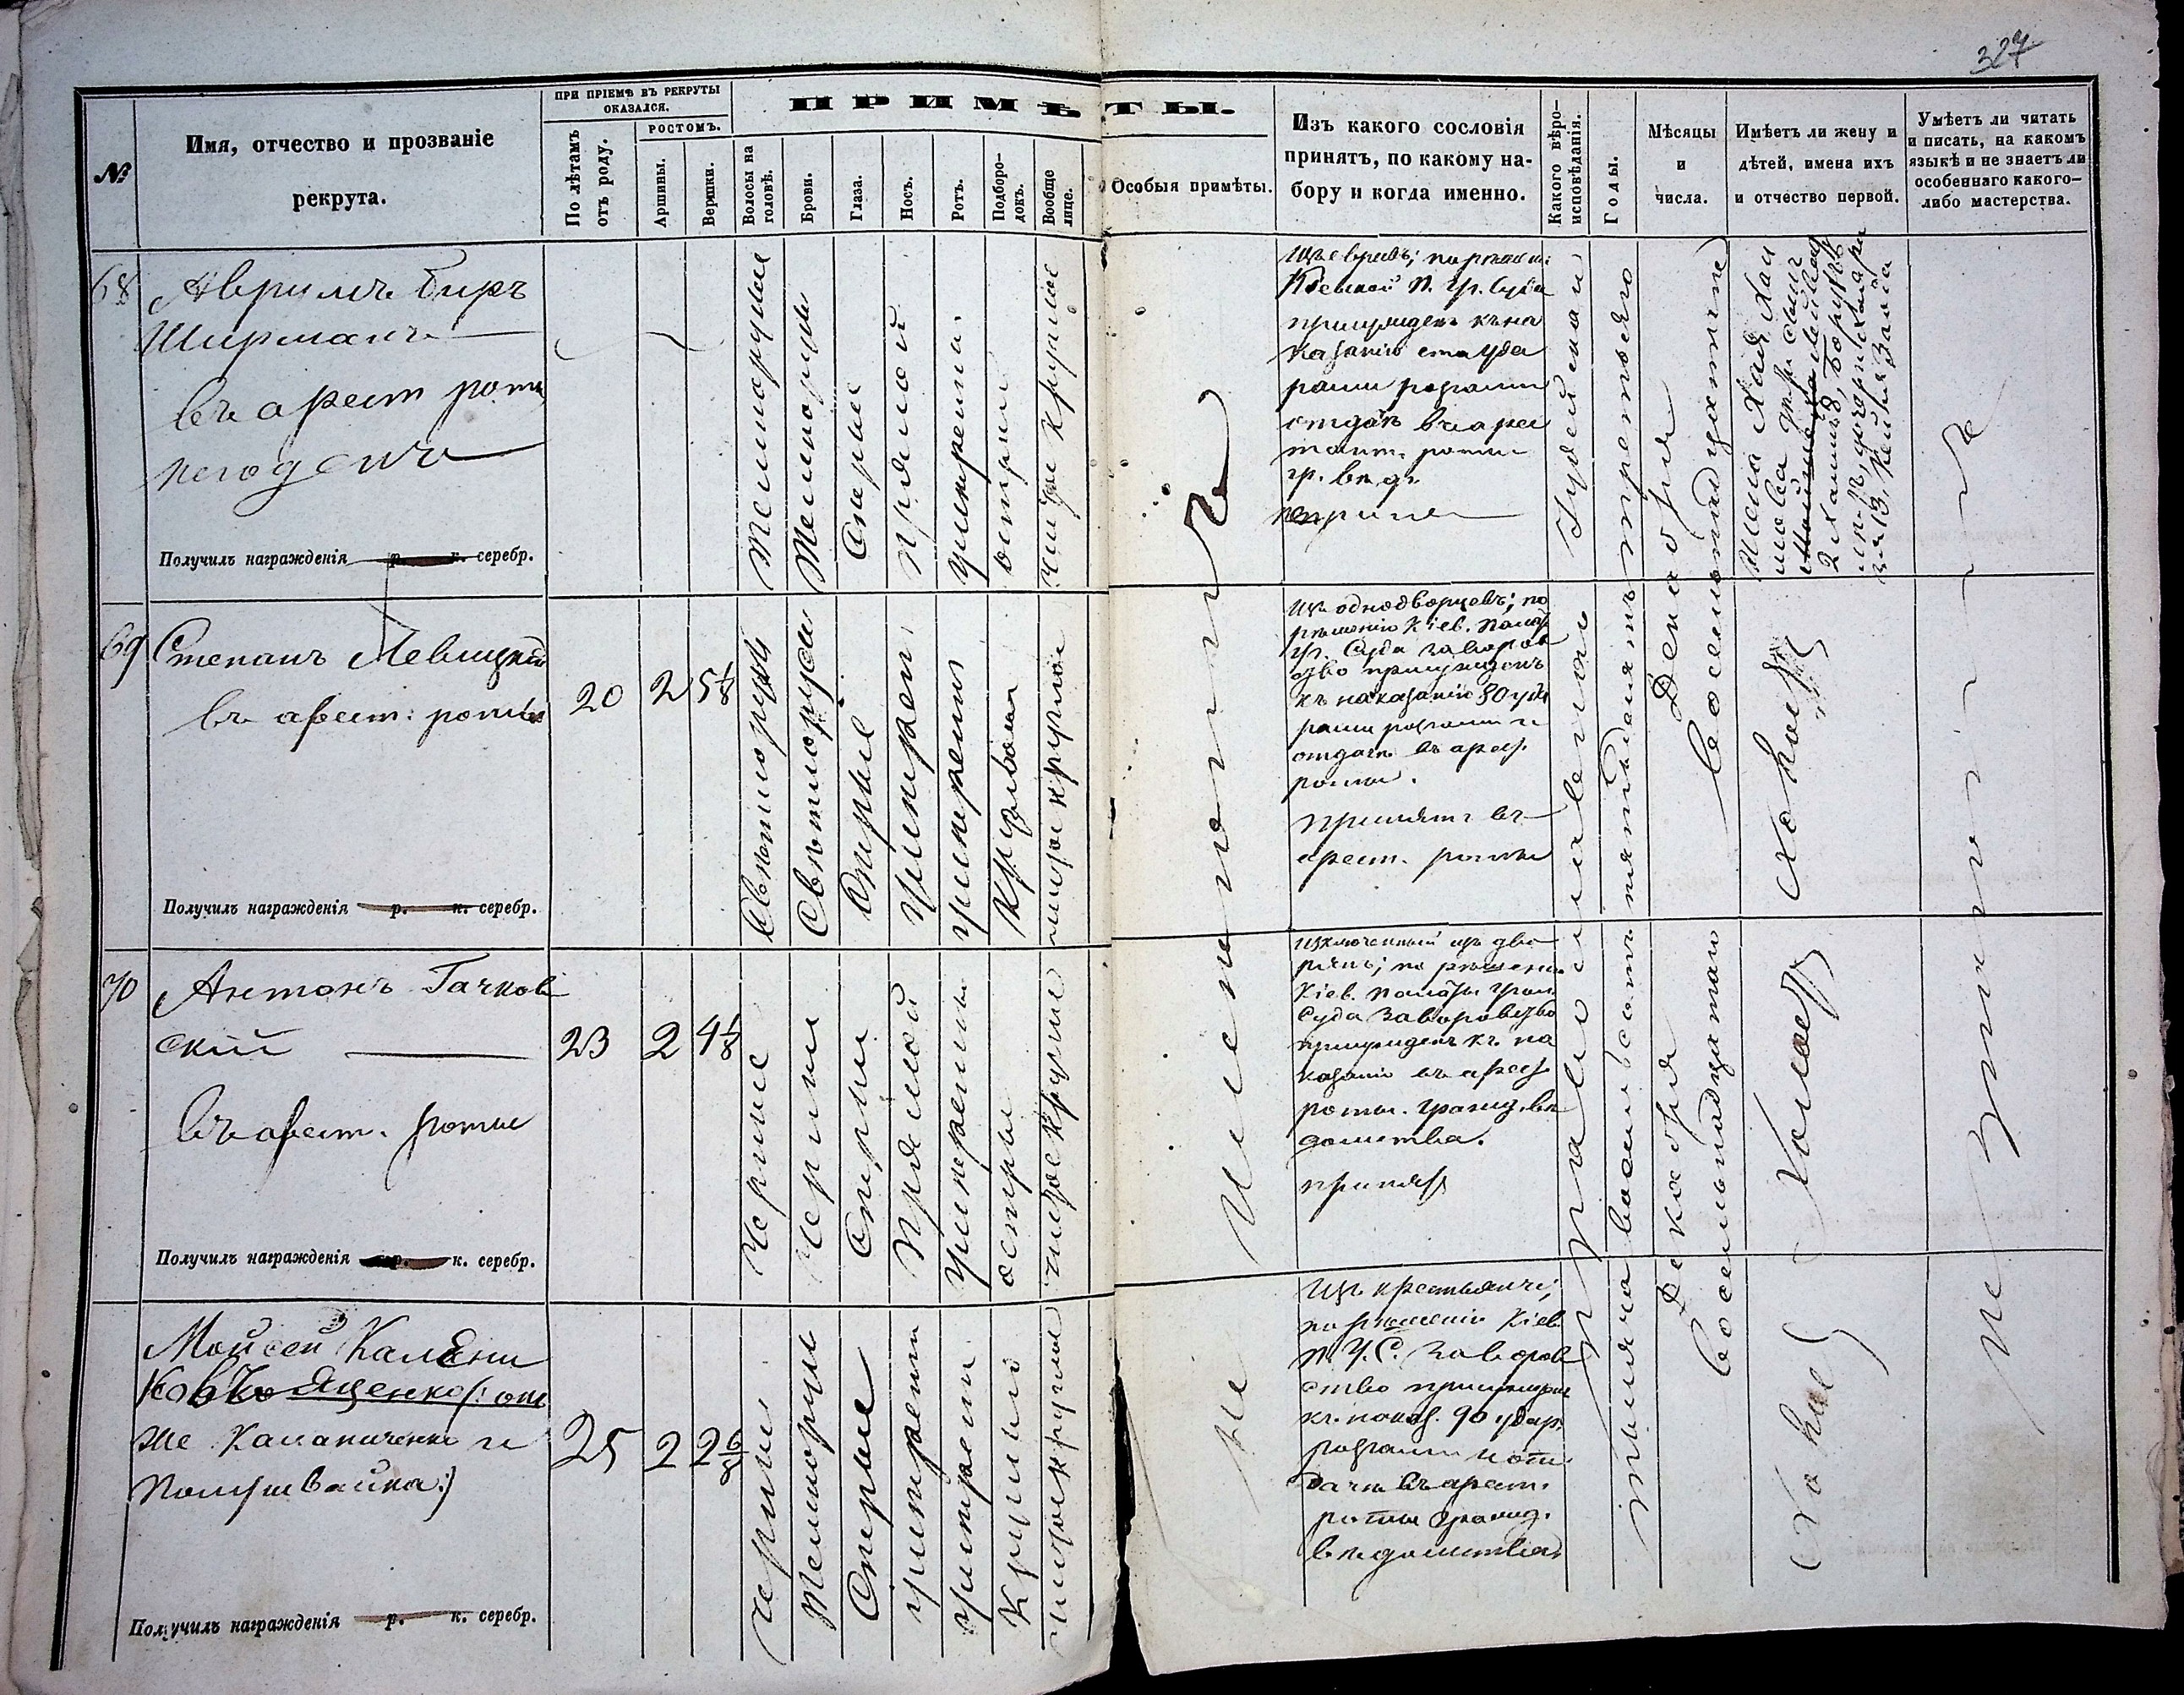 327
№
Имя, отчество и прозваніе
рекрута.
ПРИ ПРІЕМѢ ВЪ РЕКРУТЫ
ОКАЗАЛСЯ.
По лѣтамъ
отъ роду.
РОСТОМЪ.
Аршины.
Вершки.
ПРИМѢТЫ.
Волосы на
головѣ.
Брови.
Глаза.
Носъ.
Ротъ.
Подборо-
докъ.
Вообще
лице.
Особыя примѣты.
Изъ какого сословія
принятъ, по какому на-
бору и когда именно.
Какого вѣро-
исповѣданія.
Годы.
Мѣсяцы
и
числа.
Имѣетъ ли жену и
дѣтей, имена ихъ
и отчество первой.
Умѣетъ ли читать
и писать, на какомъ
языкѣ и не знаетъ ли
особеннаго какого-
либо мастерства.
68
Аврумъ Беръ
Ширманъ
въ арест роты
негоденъ
Получилъ награжденія р. к. серебр.
Темнорусые
Темнорусые
Сѣрые
прямой
умѣренный
острый
чистое круглое
Изъ евреевъ; по рѣшенію
Кіевской П. Уг. Суда
присужденъ къ на
казанію ста уда
рами розгами
отдачѣ въ арес
тант. роты
гр. вѣд.
Іудейскаго
Жена Хая Хаи
мова
69
Степанъ Левицкій
въ арест: роты
20
2
5 1/8
Получилъ награжденія р. к. серебр.
Свѣтлорусые
Свѣтлорусые
Сѣрые
умѣрен
умѣренный
круглый
чистое круглое
Изъ однодворцевъ; по
рѣшенію Кіев. Палат
Уг. Суда за воров
ство присужденъ
къ наказанію 80 уда
рами розгами и
отдачѣ въ арест
роты.
Принятъ въ
арест. роты
Холостъ
70
Антонъ Гачков
скій
въ арест. роты
23
2
4 1/8
Получилъ награжденія р. к. серебр.
Черные
черные
Сѣрые
Прямой
умѣренный
острый
чистое круглое
Исключенный изъ дво
рянъ; по рѣшенію
Кіев. Палаты Угол
Суда за воровство
присужденъ къ на
казанію въ арест
роты. гражд. вѣ
домства.
принятъ
Холостъ
Мойсей Камени
ковъ Ященко (: онъ
же Каланиченко и
Полушвайка:)
25
2
2 6/8
Получилъ награжденія р. к. серебр.
черные
темнорусые
Сѣрые
умѣренный
умѣренный
Круглый
чистое круглое
Не имѣетъ
Изъ крестьянъ;
по рѣшенію Кіев
П. У. С. за воров
ство присужденъ
къ наказ. 90 удар.
розгами и от
дачѣ въ арест.
роты гражд.
вѣдомства
Православнаго
Тысяча восемьсотъ пятьдесятъ третьяго
Декабря
восемьнадцатаго
Декабря
восемьнадцатаго
Холостъ
Не знаетъ